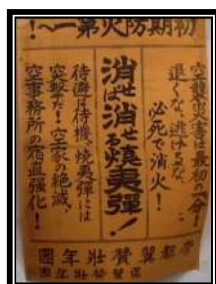 初期防火第一へ!
空襲火災は最初の一分!
退くな、逃げるな、
必死で消火!
消せば消せる焼夷弾!
待避は待機。焼夷弾には
突撃だ!空家の絶滅。
空事務所の宿直強化!
帝都翼賛壮年團
區翼賛壮年團